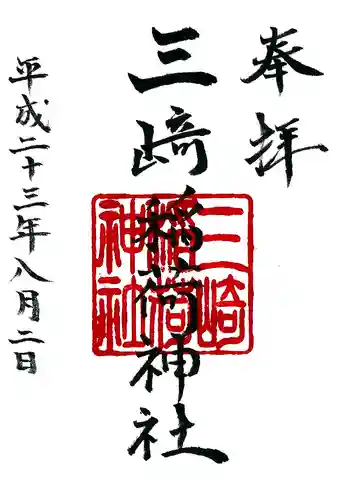 奉拝
三崎稲荷神社
三崎稲荷神社
平成二十三年八月二日